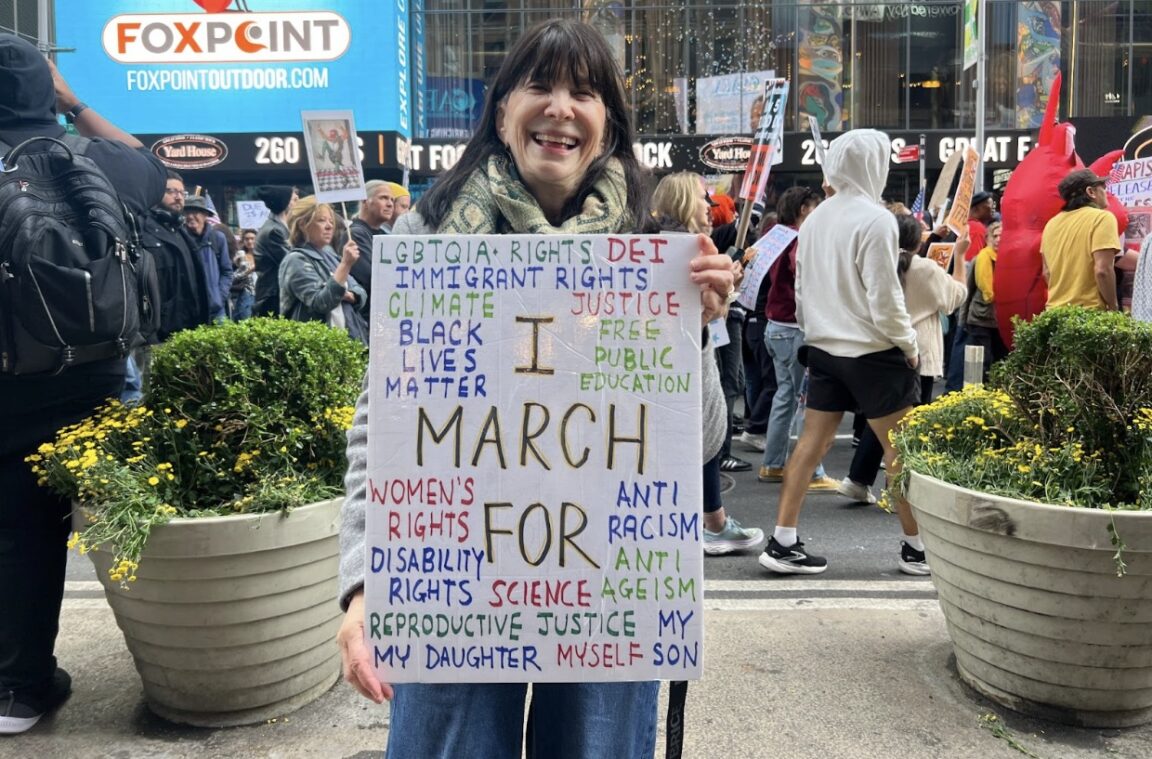 FOXPOINT
FOXPOINTOUTDOOR.COM
EXPLORE
Yard House
260
GREAT F
FOO
OCK
Yard House
260
GREAT FA
LGBTQIA+ RIGHTS DEI
IMMIGRANT RIGHTS
CLIMATE JUSTICE
BLACK LIVES MATTER
I
FREE PUBLIC EDUCATION
MARCH
FOR
WOMEN'S RIGHTS
ANTI RACISM
DISABILITY RIGHTS
SCIENCE
ANTI AGEISM
REPRODUCTIVE JUSTICE MY
MY DAUGHTER MYSELF SON